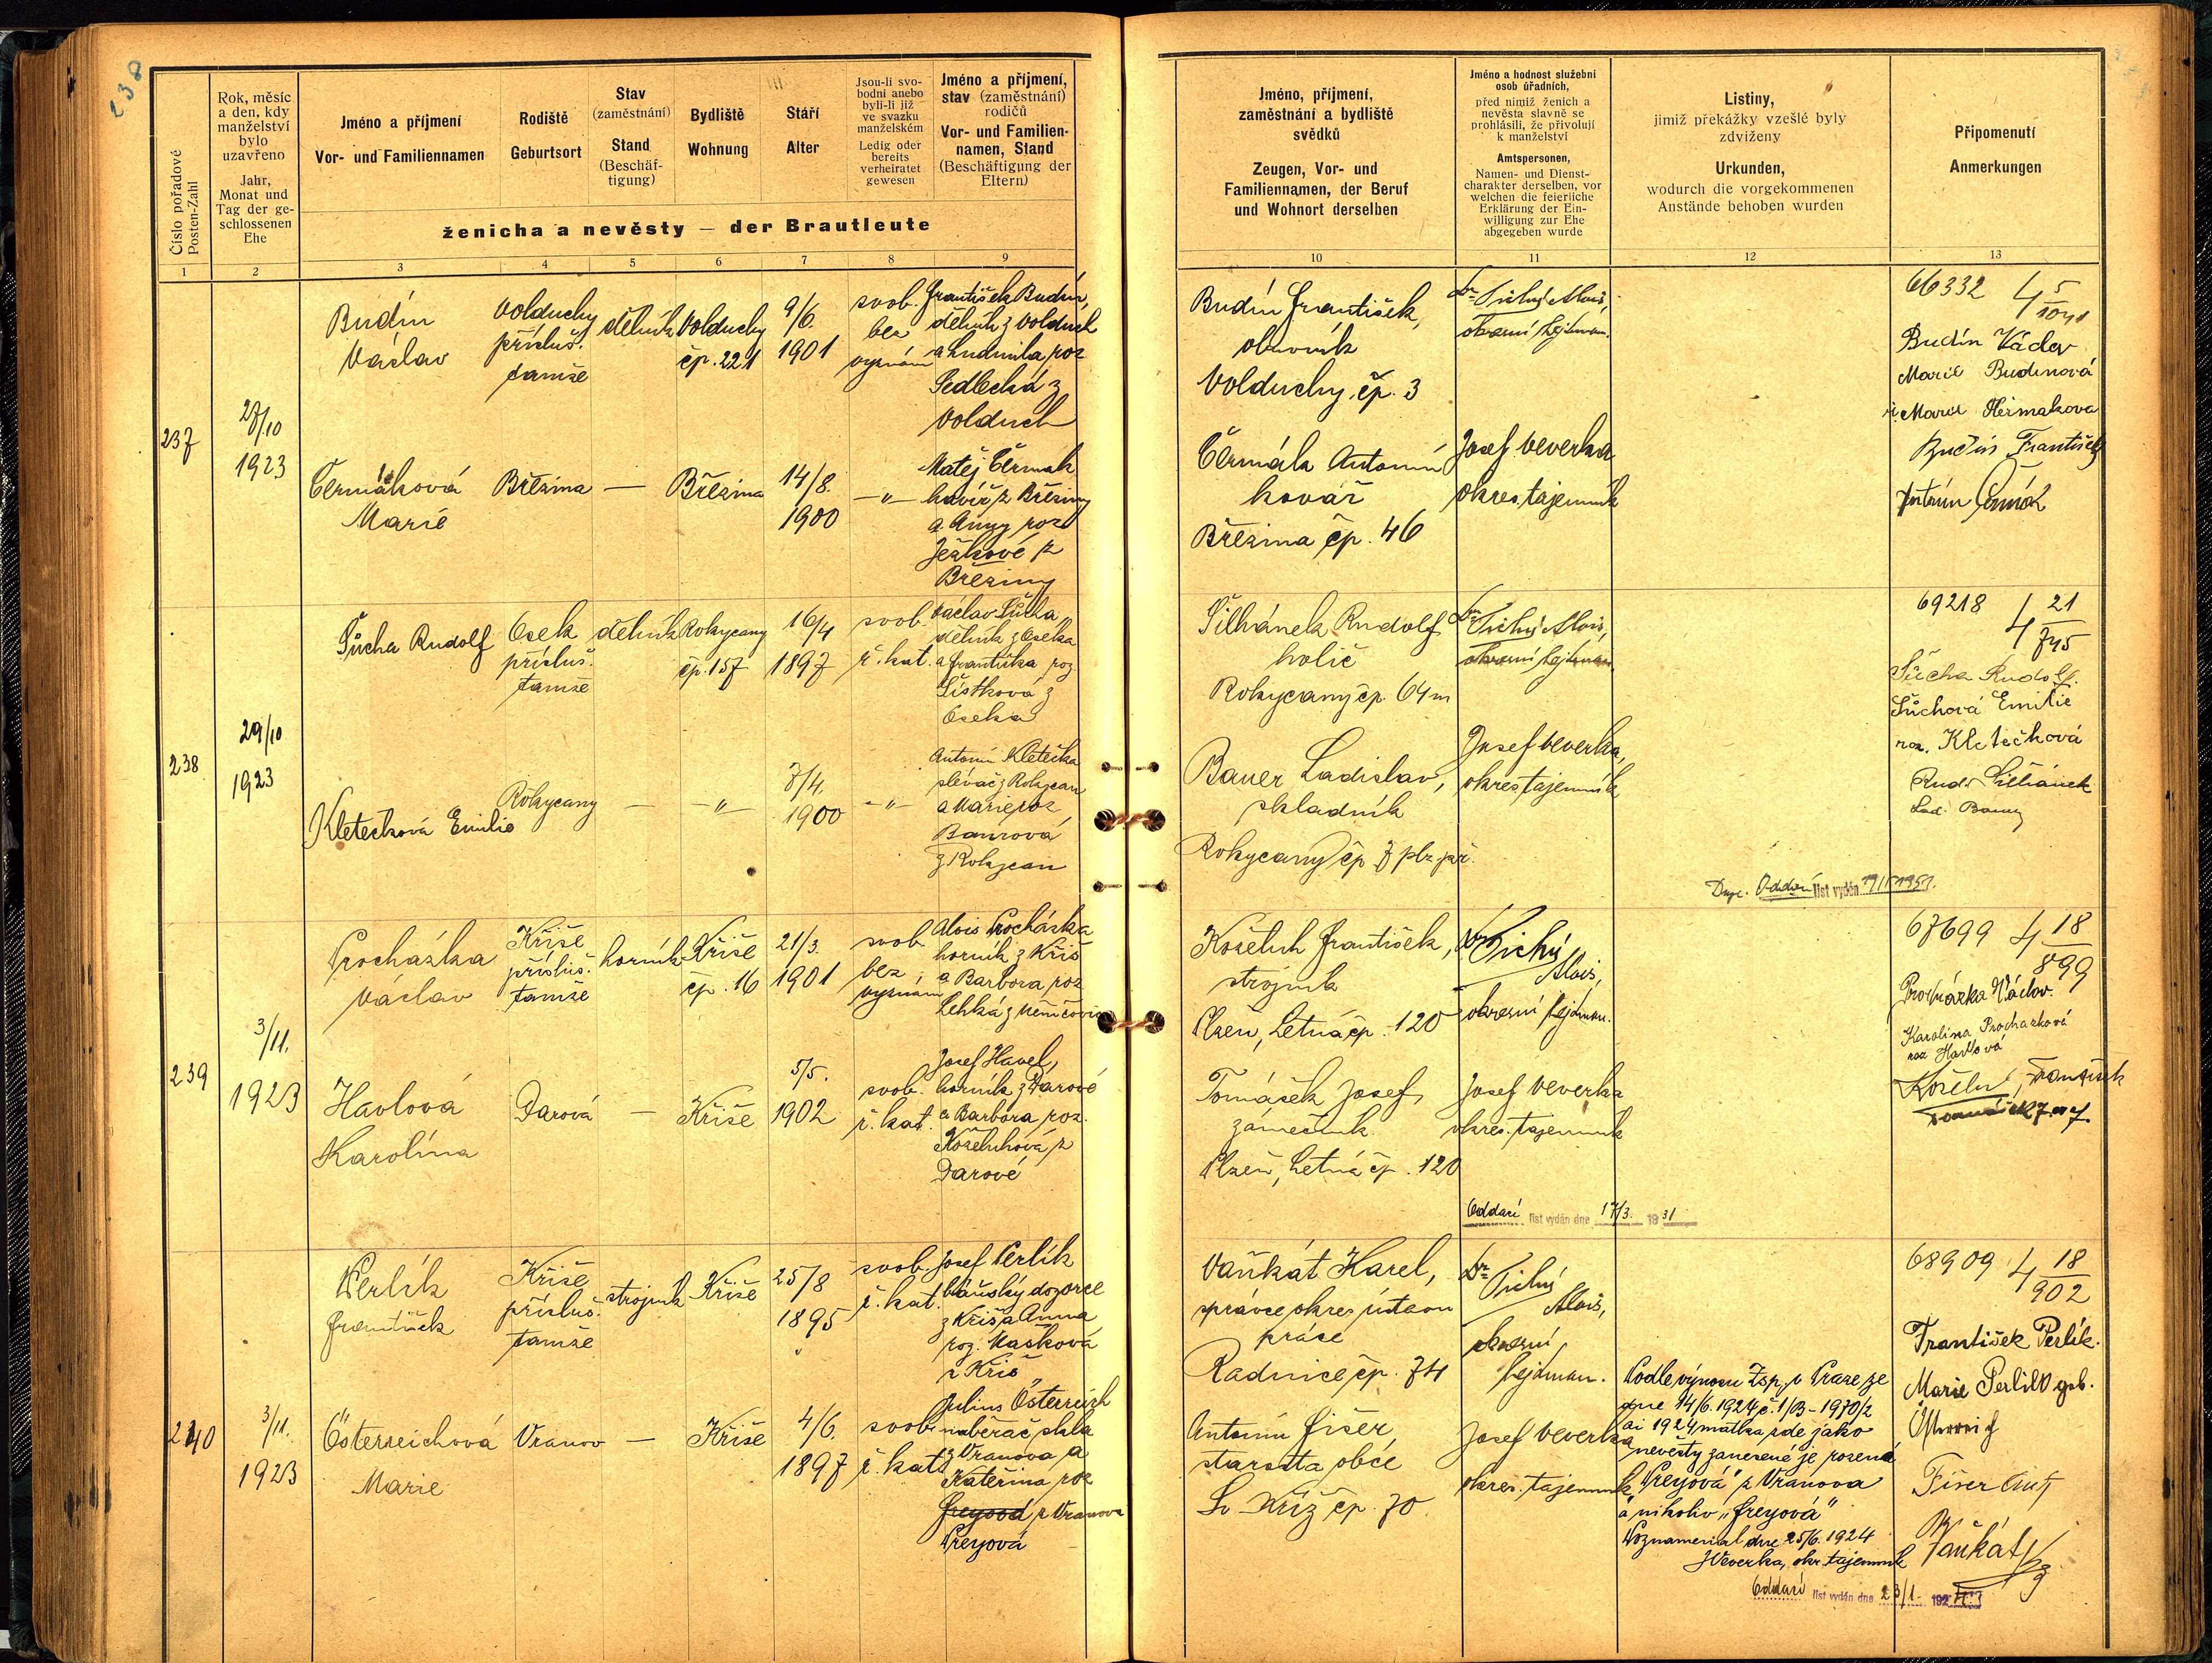 238
Číslo pořadové
Posten-Zahl
Rok, měsíc
a den, kdy
manželství
bylo
uzavřeno
Jahr,
Monat und
Tag der ge-
schlossenen
Ehe
Jméno a příjmení
Vor- und Familiennamen
Rodiště
Geburtsort
Stav
(zaměstnání)
Stand
(Beschäf-
tigung)
Bydliště
Wohnung
Stáří
Alter
Jsou-li svo-
bodni anebo
byli-li již
ve svazku
manželském
Ledig oder
bereits
verheiratet
gewesen
Jméno a příjmení,
stav (zaměstnání)
rodičů
Vor- und Familien-
namen, Stand
(Beschäftigung der
Eltern)
ženicha a nevěsty — der Brautleute
1 2 3 4 5 6 7 8 9
237
27/10
1923
Budín
Václav
Volduchy
přísluš.
tamže
dělník
Volduchy
čp. 221
9/6.
1901
svob.
bez
vyznání
František Budín,
dělník z Volduch
a Ludmila roz.
Sedlecká z
Volduch
Čermáková
Marie
Březina
—
Březina
14/8.
1900
—"—
Matěj Čermák
havíř z Březiny
a Anny roz.
Ježkové z
Březiny
238
29/10
1923
Šůcha Rudolf
Osek
přísluš.
tamže
dělník
Rokycany
čp. 157
16/4
1897
svob.
ř. kat.
Václav Šůcha
dělník z Oseka
a Františka roz.
Šístková z
Oseka
Kletečková Emilie
Rokycany
—
—"—
7/4.
1900
—"—
Antonín Kletečka
slévač z Rokycan
a Marie roz.
Baurová
z Rokycan
239
3/11.
1923
Procházka
Václav
Kříše
přísluš.
tamže
horník
Kříše
čp. 16
21/3.
1901
svob.
bez
vyznání
Alois Procházka
horník z Kříš
a Barbora roz.
Lehká z Němčovic
Havlová
Karolína
Darová
—
Kříše
5/5.
1902
svob.
ř. kat.
Josef Havel,
horník z Darové
a Barbora roz.
Koželuhová z
Darové
240
3/11.
1923
Perlík
František
Kříše
přísluš.
tamže
strojník
Kříše
25/8
1895
svob.
ř. kat.
Josef Perlík
báňský dozorce
z Kříš a Anna
roz. Mašková
z Kříš
Österreichová
Marie
Vranov
—
Kříše
4/6.
1897
svob.
ř. kat.
Julius Österreich
naběrač skla
z Vranova a
Kateřina roz.
Freyová z Vranova
Preyová
Jméno, příjmení,
zaměstnání a bydliště
svědků
Zeugen, Vor- und
Familiennamen, der Beruf
und Wohnort derselben
Jméno a hodnost služební
osob úřadních,
před nimiž ženich a
nevěsta slavně se
prohlásili, že přivolují
k manželství
Amtspersonen,
Namen- und Dienst-
charakter derselben, vor
welchen die feierliche
Erklärung der Ein-
willigung zur Ehe
abgegeben wurde
Listiny,
jimiž překážky vzešlé byly
zdviženy
Urkunden,
wodurch die vorgekommenen
Anstände behoben wurden
Připomenutí
Anmerkungen
10 11 12 13
Budín František,
obuvník
Volduchy, čp. 3
Dr. Tichý Alois,
okresní hejtman.
Čermák Antonín
kovář
Březina čp. 46
Josef Veverka
okres. tajemník
66332 4 5/1041
Budín Václav
Marie Budínová
r. Marie Čermáková
Budín František
Antonín Čermák
Šilhánek Rudolf
holič
Rokycany čp. 64 m
Dr. Tichý Alois,
okresní hejtman.
Bauer Ladislav,
skladník
Rokycany čp. 7 plz. př.
Josef Veverka,
okres. tajemník
Dupl. Oddaní list vydán 1951.
69218 4 21/745
Šůcha Rudolf.
Šůchová Emilie
roz. Kletečková
Rud. Šilhánek
Lad. Bauer
Koželuh František,
strojník
Plzeň, Letná čp. 120
Dr. Tichý
Alois,
okresní hejtman.
Tomášek Josef
zámečník
Plzeň, Letná čp. 120
Josef Veverka
okres. tajemník
Oddací list vydán dne 17/3. 1931
67699 4 18/899
Procházka Václav.
Karolina Procházková
roz. Havlová
Koželuh František
Tomášek Josef.
Vaňkát Karel,
správce okres. ústavu
práce
Radnice čp. 74
Dr. Tichý
Alois,
okresní
hejtman.
Antonín Fišer
starosta obce
Sv. Kříž čp. 70.
Josef Veverka
okres. tajemník
Podle výnosu Zsp. v Praze ze
dne 14/6. 1924 č. 1/B-1970/2
ai 1924 matka zde jako
nevěsty zanesené je rozená
"Preyová" z Vranova
a nikoliv "Freyová"
Poznamenal dne 25/6. 1924
J Veverka, okr. tajemník
Oddací list vydán dne 23/1.
68909 4 18/902
František Perlík.
Marie Perlik geb.
Österreich
Fišer Ant.
Vaňkát